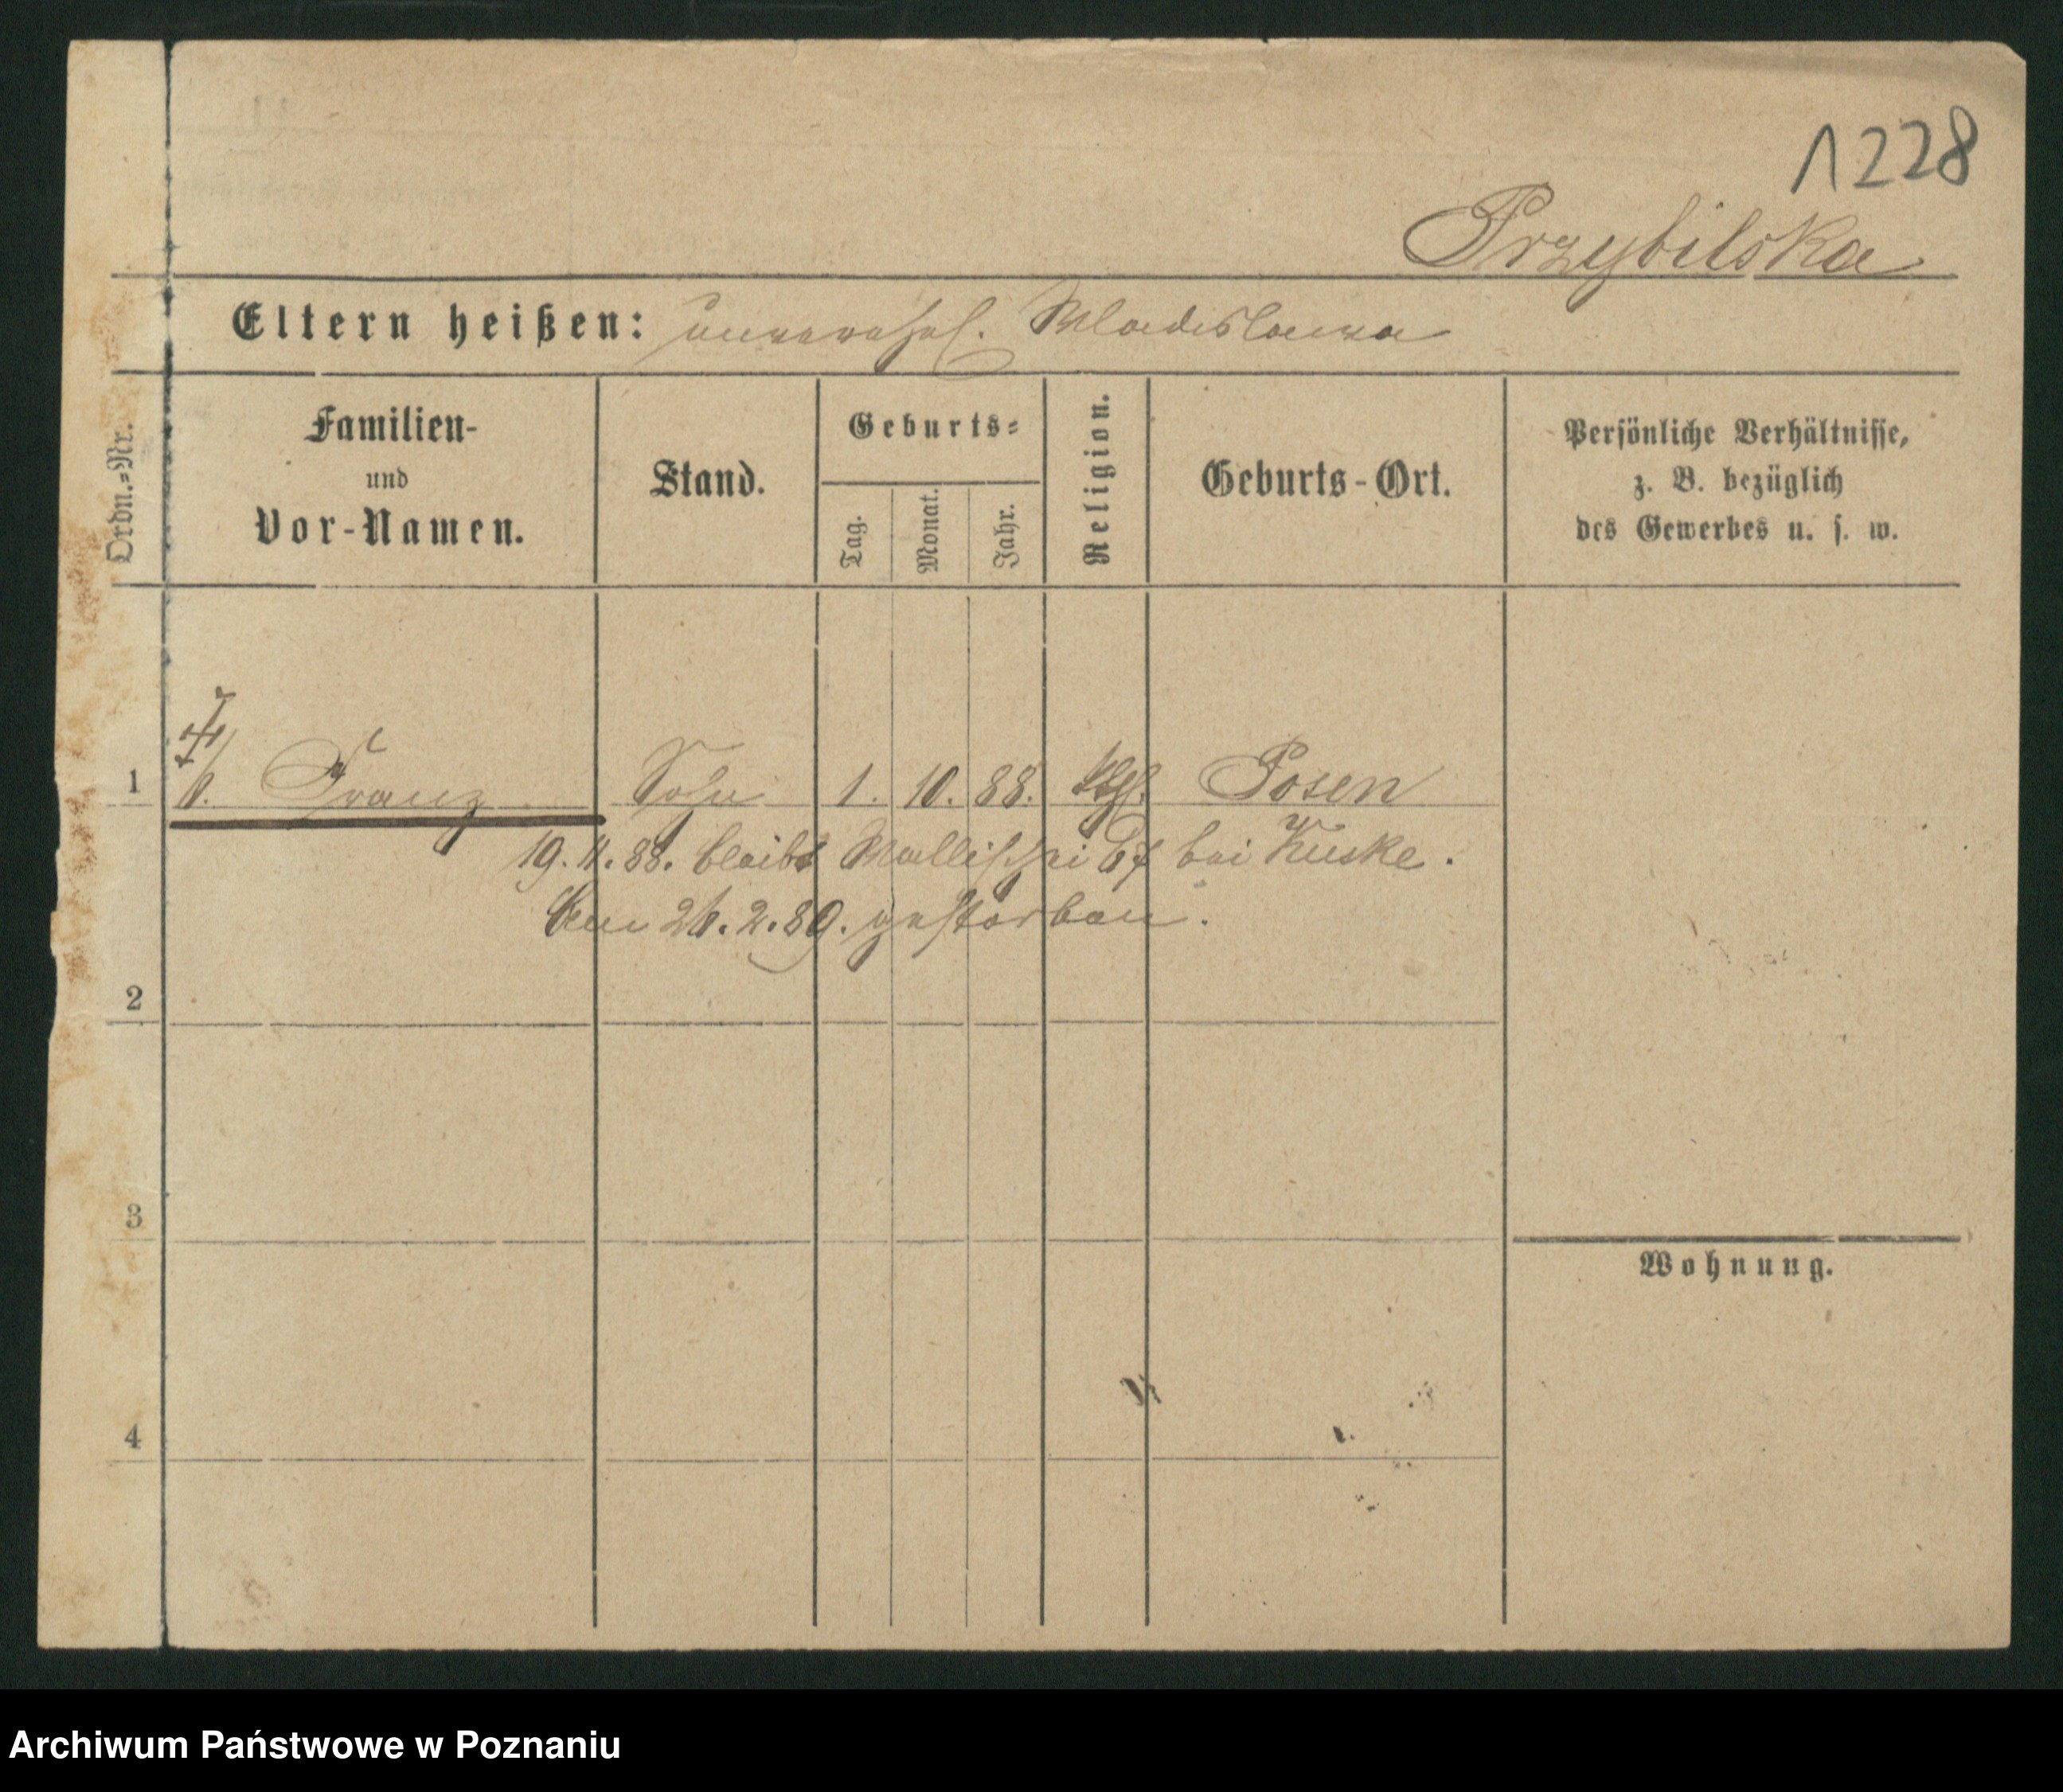 1228
Przybilska
Eltern heißen: unverehel. Wladislawa
Ordn.=Nr.
Familien-
und
Vor-Namen.
Stand.
Geburts=
Tag.
Monat.
Jahr.
Religion.
Geburts-Ort.
Persönliche Verhältnisse,
z. B. bezüglich
des Gewerbes u. s. w.
1 Franz Sohn 1. 10. 88. kth. Posen
19. 11. 88. bleibt Wallischei bei Kuske.
2
3
4
Wohnung.
Archiwum Państwowe w Poznaniu